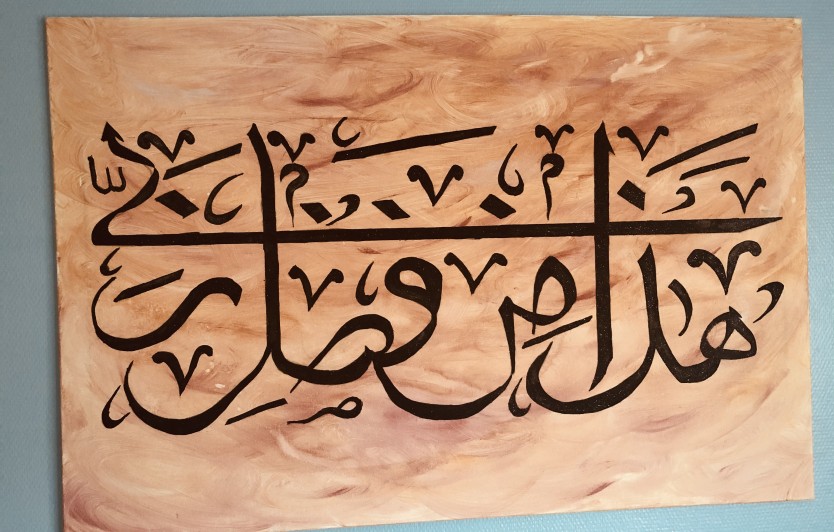 هَٰذَا مِنْ فَضْلِ رَبِّي